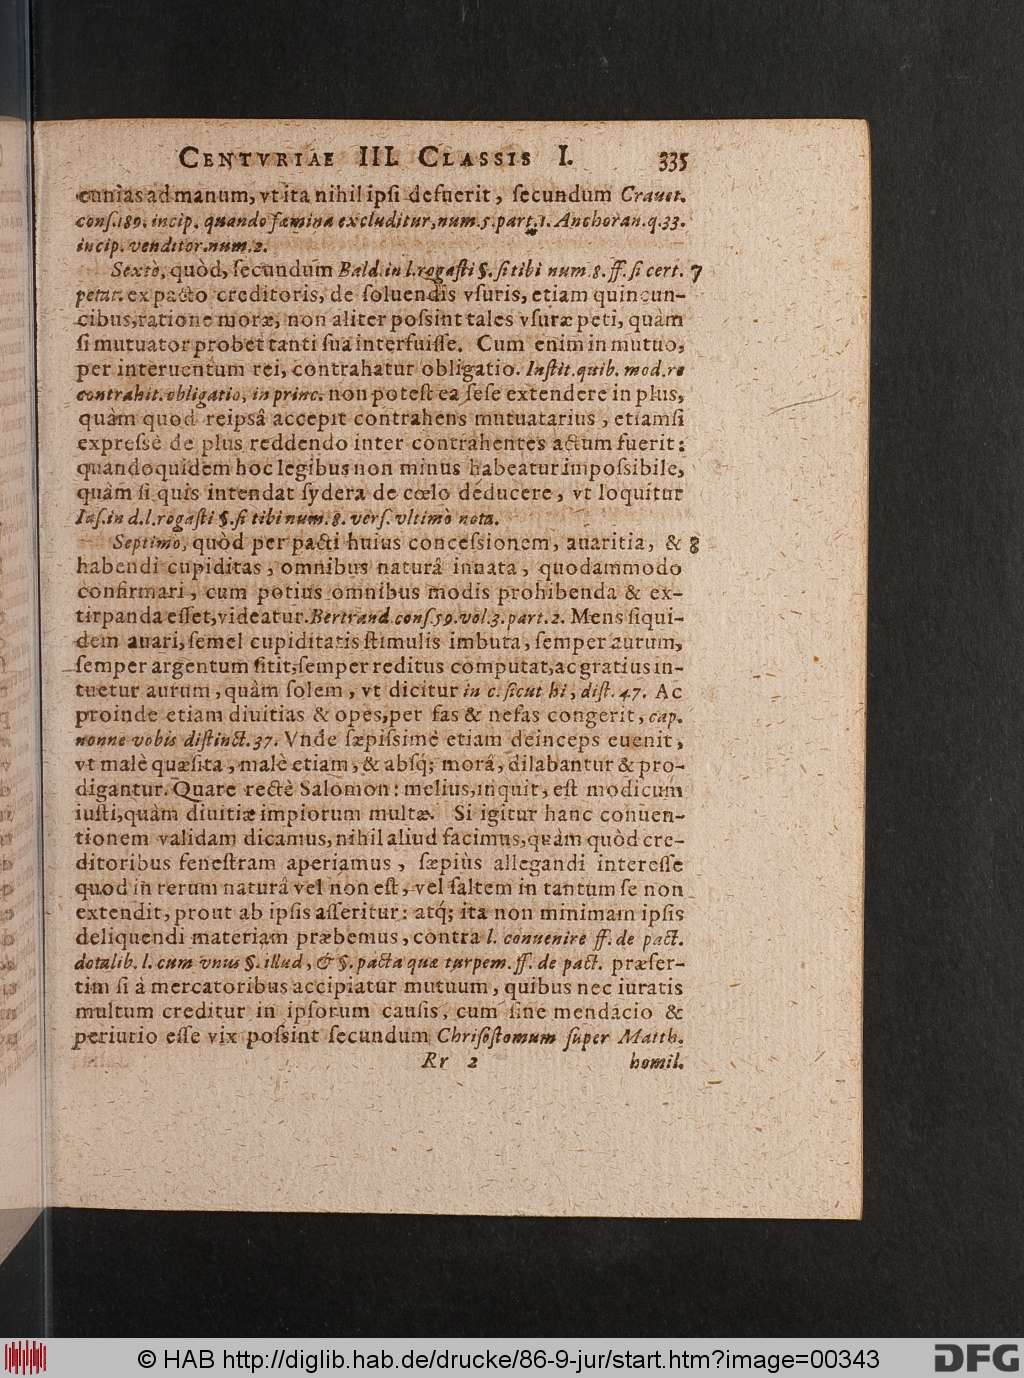 CENTVRIAE III. CLASSIS I. 335
cunias ad manum, vt ita nihil ipſi defuerit, ſecundum Crauet.
conſ.189. incip. quando fæmina excluditur, num.5. part.1. Anchoran. q.33.
incip. venditor. num.2.
Sextò, quòd, ſecundum Bald. in l. rogaſti §. ſi tibi num. 8. ff. ſi cert. 7
petat. ex pacto creditoris, de ſoluendis vſuris, etiam quincun-
cibus, ratione moræ, non aliter poſsint tales vſuræ peti, quàm
ſi mutuator probet tanti ſua interfuiſſe. Cum enim in mutuo,
per interuentum rei, contrahatur obligatio. Inſtit. quib. mod. re
contrahit. obligatio, in princ. non poteſt ea ſeſe extendere in plus,
quàm quod reipsâ accepit contrahens mutuatarius, etiamſi
expreſsè de plus reddendo inter contrahentes actum fuerit:
quandoquidem hoc legibus non minus habeatur impoſsibile,
quàm ſi quis intendat ſydera de cœlo deducere, vt loquitur
Iaſ. in d. l. rogaſti §. ſi tibi num. 8. verſ. vltimò nota.
Septimò, quòd per pacti huius conceſsionem, auaritia, & 8
habendi cupiditas, omnibus naturâ innata, quodammodo
confirmari, cum potius omnibus modis prohibenda & ex-
tirpanda eſſet, videatur. Bertrand. conſ.59. vol.3. part. 2. Mens ſiqui-
dem auari, ſemel cupiditatis ſtimulis imbuta, ſemper aurum,
ſemper argentum ſitit; ſemper reditus computat, ac gratius in-
tuetur aurum, quàm ſolem, vt dicitur in c. ſicut hi, diſt. 47. Ac
proinde etiam diuitias & opes, per fas & nefas congerit, cap.
nonne vobis diſtinct. 37. Vnde ſæpiſsimè etiam deinceps euenit,
vt malè quæſita, malè etiam, & abſq́; morâ, dilabantur & pro-
digantur. Quare rectè Salomon: melius, inquit, eſt modicum
iuſti, quàm diuitiæ impiorum multæ. Si igitur hanc conuen-
tionem validam dicamus, nihil aliud facimus, quàm quòd cre-
ditoribus feneſtram aperiamus, ſæpiùs allegandi intereſſe
quod in rerum naturâ vel non eſt, vel ſaltem in tantum ſe non
extendit, prout ab ipſis aſſeritur: atq́; ita non minimam ipſis
deliquendi materiam præbemus, contra l. conuenire ff. de pact.
dotalib. l. cum vnus §. illud, & §. pacta quæ turpem. ff. de pact. præſer-
tim ſi à mercatoribus accipiatur mutuum, quibus nec iuratis
multum creditur in ipſorum cauſis, cum ſine mendacio &
periurio eſſe vix poſsint ſecundum Chriſoſtomum ſuper Matth.
Rr 2 homil.
© HAB http://diglib.hab.de/drucke/86-9-jur/start.htm?image=00343
DFG